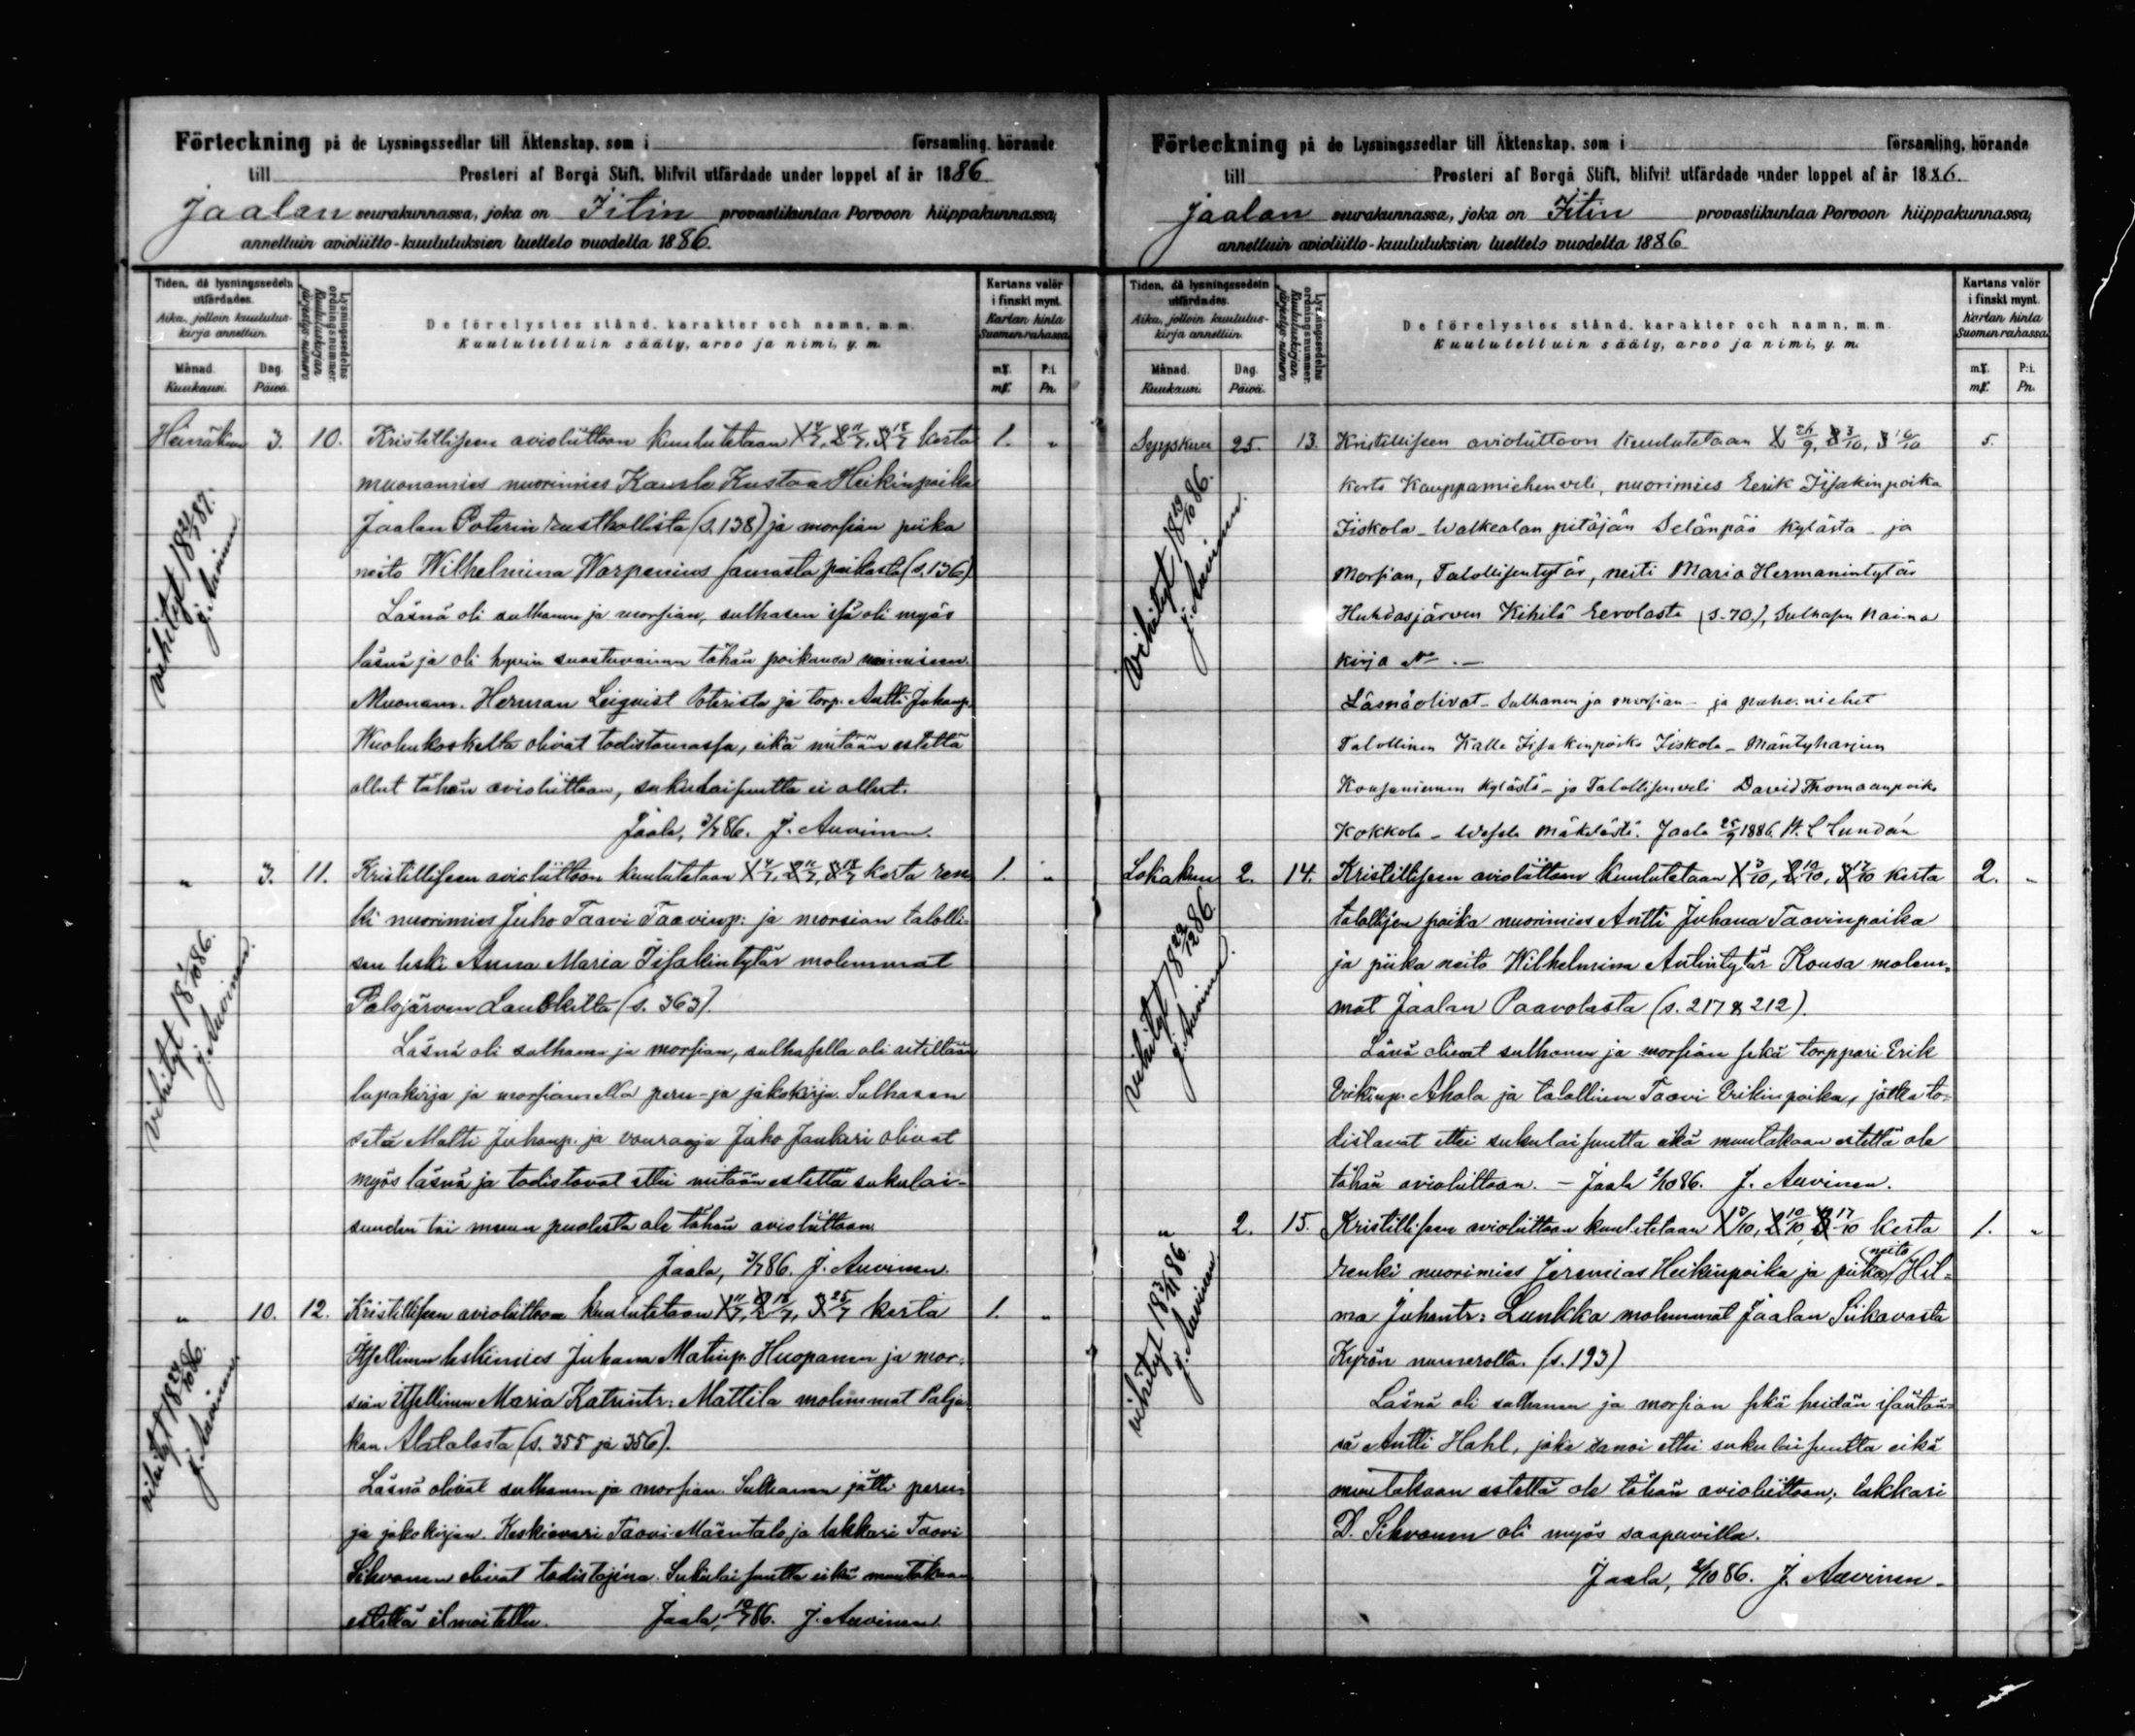 Förteckning på de Lysningssedlar till Äktenskap, som i församling, hörande
till Prosteri af Borgå Stift, blifvit utfärdade under loppet af år 1886
Jaalan seurakunnassa, joka on Iitin provastikuntaa Porvoon hiippakunnassa,
annettuin avioliitto-kuulutuksien luettelo vuodelta 1886.
Tiden, då lysningssedeln utfärdades.
Aika, jolloin kuulutus-kirja annettiin.
Månad. Kuukausi.
Dag. Päivä.
Lysningssedelns ordningsnummer.
Kuulutuskirjan järjestys-numero
De förelystes stånd, karakter och namn, m. m.
Kuulutelluin sääty, arvo ja nimi, y. m.
Kartans valör i finskt mynt.
Kartan hinta Suomen rahassa
mk. P:i.
mk. Pn.
Heinäkuu 3. 10. Kristilliseen avioliittoon kuulutetaan X 1 4/7, 2 11/7, 3 18/7 kerta 1. "
muonamies nuorimies Kaarle Kustaa Heikinpoika
Jaalan Poterin rusthollista (s. 138) ja morsian piika
neito Wilhelmina Warpenius samasta paikasta (s. 136)
Läsnä oli sulhanen ja morsian, sulhasen isä oli myös
läsnä ja oli hyvin suostuvainen tähän poikansa naimiseen.
Muonam. Herman Leiqvist Poterista ja torp. Antti Juhanp.
Wuolenkoskelta olivat todistamassa, eikä mitään estettä
ollut tähän avioliittoon, sukulaisuutta ei ollut.
Jaala, 3/7 86. J. Auvinen.
J. Auvinen.
" 3. 11. Kristilliseen avioliittoon kuulutetaan X 1 4/7, 2 11/7, 3 18/7 kerta ren- 1. "
ki nuorimies Juho Taavi Taavinp: ja morsian talolli-
sen leski Anna Maria Iisakintytär molemmat
Palojärven (s. 363).
Läsnä oli sulhanen ja morsian, sulhasella oli äitiltään
lupakirja ja morsiamella peru- ja jakokirja. Sulhasen
setä Matti Juhanp. ja vouraaja Juho Jaakari olivat
myös läsnä ja todistavat ettei mitään estettä sukulai-
suuden tai muun puolesta ole tähän avioliittoon.
Jaala, 3/7 86. J. Auvinen.
J. Auvinen.
" 10. 12. Kristilliseen avioliittoon kuulutetaan X 1 11/7, 2 18/7, 3 25/7 kerta 1. "
Itsellinen leskimies Juhana Matinp. Huopanen ja mor-
sian itsellinen Maria Katrintr: Mattila molemmat Palja-
kan Alatalosta (s. 355 ja 356).
Läsnä olivat sulhanen ja morsian. Sulhanen jätti peru-
ja jakokirjan. Keskievari Taavi Mäentalo ja lukkari Taavi
Sihvonen olivat todistajina. Sukulaisuutta eikä muutakaan
estettä ilmoitettu. Jaala, 10/7 86. J. Auvinen.
J. Auvinen.
Förteckning på de Lysningssedlar till Äktenskap, som i församling, hörande
till Prosteri af Borgå Stift, blifvit utfärdade under loppet af år 1886.
Jaalan seurakunnassa, joka on Iitin provastikuntaa Porvoon hiippakunnassa,
annettuin avioliitto-kuulutuksien luettelo vuodelta 1886
Tiden, då lysningssedeln utfärdades.
Aika, jolloin kuulutus-kirja annettiin.
Månad. Kuukausi.
Dag. Päivä.
Lysningssedelns ordningsnummer.
Kuulutuskirjan järjestys-numero
De förelystes stånd, karakter och namn, m. m.
Kuulutelluin sääty, arvo ja nimi, y. m.
Kartans valör i finskt mynt.
Kartan hinta Suomen rahassa.
mk. P:i.
mk. Pn.
Syyskuu 25. 13. Kristilliseen avioliittoon kuulutetaan X 26/9, 2 3/10, 3 10/10 5.
kerta Kauppamiehen veli, nuorimies Eerik Iisakinpoika
Iiskola - Walkealan pitäjän Selänpää kylästä - ja
Morsian, Talollisentytär, neiti Maria Hermanintytär
Huhdasjärven Kihilä Eerolasta (s. 70.), Sulhasen Naima
kirja
Läsnäolivat - Sulhanen ja morsian - ja puhe.miehet
Talollinen Kalle Iisakinpoika Iiskola - Mäntyharjun
kylästä - ja Talollisenveli David Thomaanpoika
Kokkola - Mäkelästä. Jaala 25/9 1886. Lundán
J. Auvinen.
Lokakuu 2. 14. Kristilliseen avioliittoon kuulutetaan X 3/10, 2 10/10, 3 17/10 kerta 2. "
talollisen poika nuorimies Antti Juhana Taavinpoika
ja piika neito Wilhelmina Antintytär Kousa molem-
mat Jaalan Paavolasta (s. 217 & 212).
Läsnä olivat sulhanen ja morsian sekä torppari Erik
Erikinp. Ahola ja talollinen Taavi Erikinpoika, jotka to-
distavat ettei sukulaisuutta eikä muutakaan estettä ole
tähän avioliittoon. - Jaala 2/10 86. J. Auvinen.
vihityt 18 29/12 86.
J. Auvinen.
" 2. 15. Kristilliseen avioliittoon kuulutetaan X 3/10, 2 10/10, 3 17/10 kerta 1. "
Renki nuorimies Jeremias Heikinpoika ja piika neito Hil-
ma Juhantr: Lunkka molemmat Jaalan Siikavasta
Kyrön numerolta. (s. 193)
Läsnä oli sulhanen ja morsian sekä heidän isäntän-
sä Antti Hahl, joka sanoi ettei sukulaisuutta eikä
muutakaan estettä ole tähän avioliittoon; lukkari
D. Sihvonen oli myös saapuvilla.
Jaala, 2/10 86. J. Auvinen.
J. Auvinen.